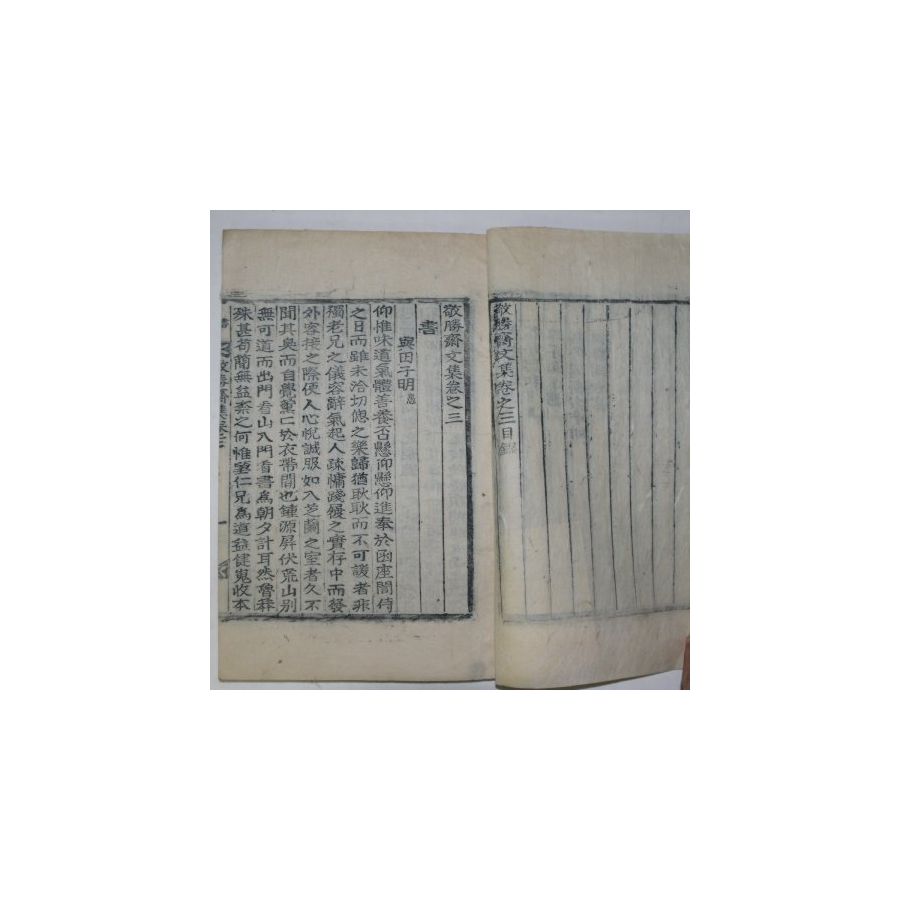 敬勝齋文集卷之三目錄
敬勝齋文集卷之三
書
與田子明
仰惟味道氣體善養否懸仰懸仰進奉於函座閤侍
之日而雖未洽切偲之樂歸猶耿耿而不可諼者非
獨老兄之儀容辭氣起人疏慵踐履之實存中而發
外客接之際使人心悅誠服如入芝蘭之室者久不
聞其臭而自覺薰於衣帶間也鍾源屛伏荒山別
無可道而出門看山入門看書爲朝夕計耳然魯莽
殊甚苟簡無益柰之何惟望仁兄爲道益健嵬收本